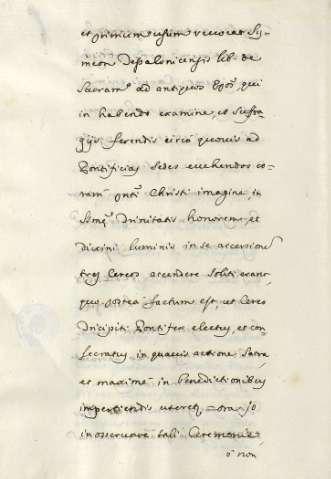 et primum usum revocat Sy,
meon Thessalonicensis lib. de
Sacram: ad antiquos Epõs, qui
in habendo examine, et suffra,
gijs ferendis circa quouis ad
Pontificias Sedes euehendos co,
ram Christi imagine, in
Trinitatis honorem, et
diuini luminis in se accersione
tres Cereos accendere soliti erant,
quo postea factum est, ut Cereo
Tricipiti Pontifex electus, et con,
secratus in quauis actione Sacra
et maximè in benedictionibus
impertiendis uteretur = ora io
in osseruare tali Ceremonie,
ò non